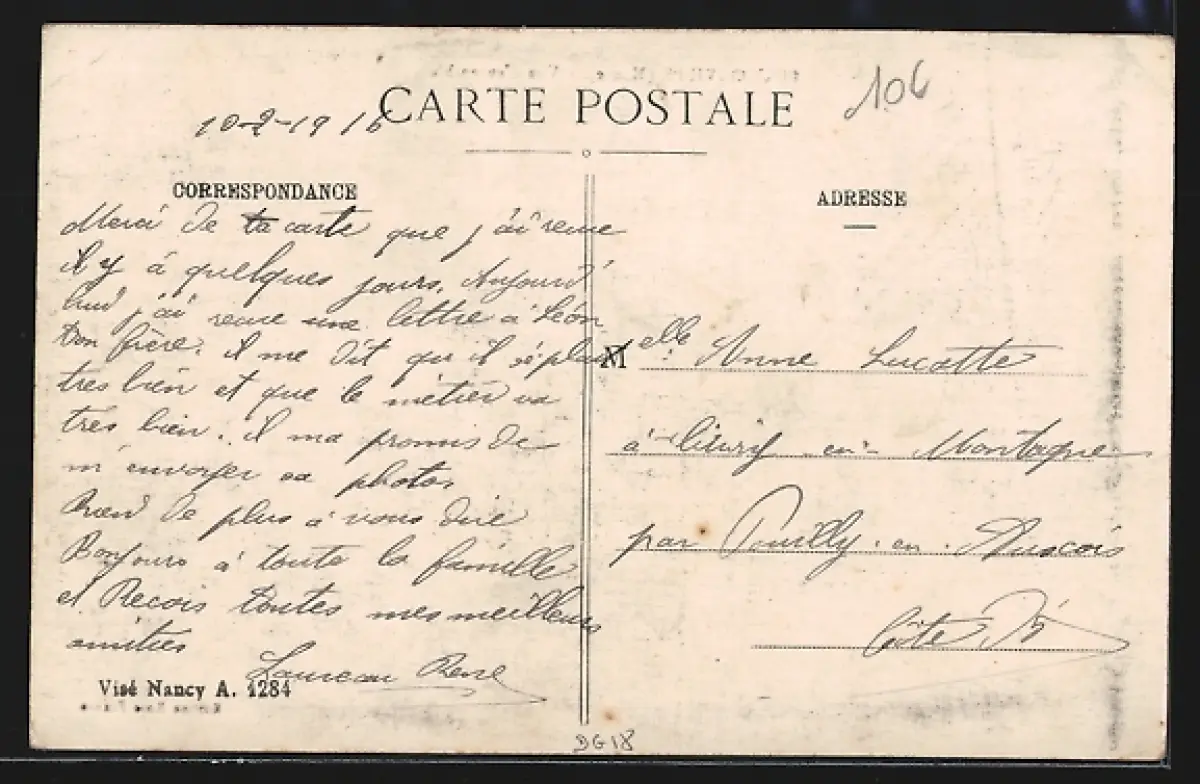 CARTE POSTALE
106
10-2-1916
CORRESPONDANCE
Merci de ta carte que j'ai reçue
il y à quelques jours. Aujourd'
hui j'ai reçue une lettre a Léon
ton frère. il me dit qu'il s'é plait
tres bien et que le métier va
très bien. il ma promis de
m'envoyer sa photos
Rien de plus a vous dire
Bonjours à toute la famille
et Recois toutes mes meilleurs
amitiés
René
Visé Nancy A. 1284
ADRESSE
Melle Anne Lucotte
à en Montagne
par Pouilly-en-Auxois
Côte D'
DG18